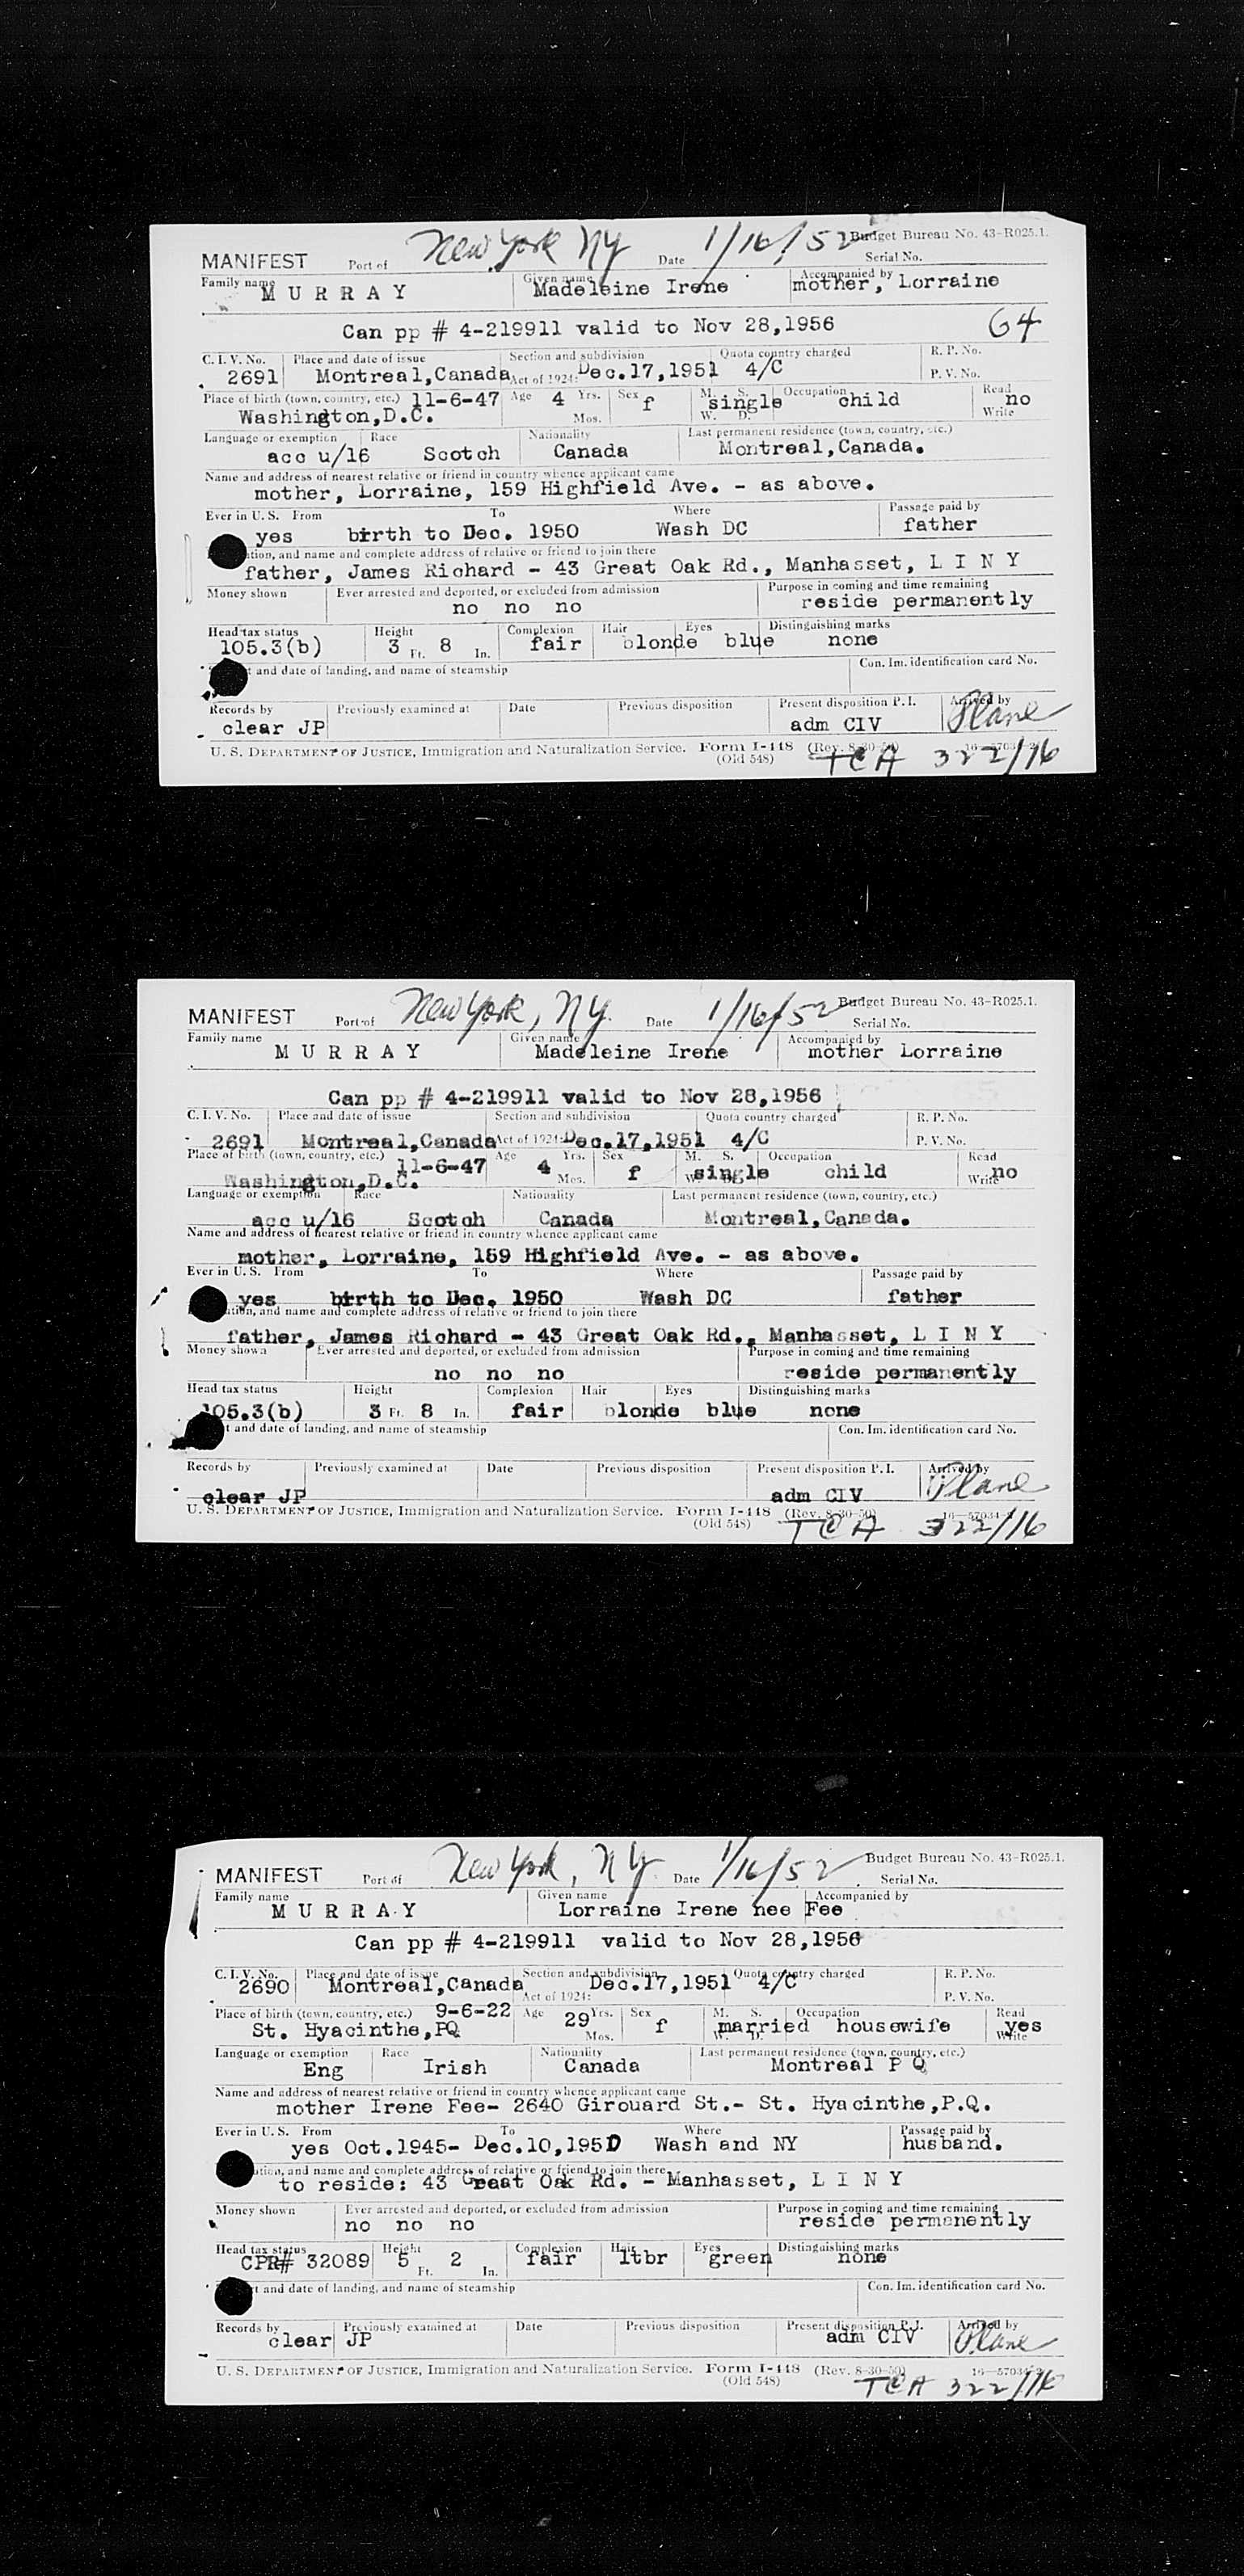 MANIFEST Port of New York NY Date 1/16/52 Budget Bureau No. 43-R025.1.
Serial No.
Family name Given name Accompanied by
M U R R A Y Madeleine Irene mother, Lorraine
Can pp # 4-219911 valid to Nov 28,1956 G4
C. I. V. No. Place and date of issue Section and subdivision Quota country charged R. P. No.
2691 Montreal,Canada Act of 1924: Dec.17,1951 4/C P. V. No.
Place of birth (town, country, etc.) 11-6-47 Age 4 Yrs. Sex f M. S. single Occupation child Read no
Washington,D.C. Mos. W. D. Write
Language or exemption Race Nationality Last permanent residence (town, country, etc.)
acc u/16 Scotch Canada Montreal,Canada.
Name and address of nearest relative or friend in country whence applicant came
mother, Lorraine, 159 Highfield Ave. - as above.
Ever in U. S. From To Where Passage paid by
yes birth to Dec. 1950 Wash DC father
tion, and name and complete address of relative or friend to join there
father, James Richard - 43 Great Oak Rd., Manhasset, L I N Y
Money shown Ever arrested and deported, or excluded from admission Purpose in coming and time remaining
no no no reside permanently
Head tax status Height Complexion Hair Eyes Distinguishing marks
105.3(b) 3 Ft. 8 In. fair blonde blue none
t and date of landing, and name of steamship Con. Im. identification card No.
Records by Previously examined at Date Previous disposition Present disposition P. I. Arrived by
clear JP adm CIV Plane
U. S. DEPARTMENT OF JUSTICE, Immigration and Naturalization Service. Form I-448 (Rev. 8-30-50)
(Old 548) TCA 322/16
MANIFEST Port of New York, NY. Date 1/16/52 Budget Bureau No. 43-R025.1.
Serial No.
Family name Given name Accompanied by
M U R R A Y Madeleine Irene mother Lorraine
Can pp # 4-219911 valid to Nov 28,1956
C. I. V. No. Place and date of issue Section and subdivision Quota country charged R. P. No.
2691 Montreal,Canada Act of 1924: Dec.17,1951 4/C P. V. No.
Place of birth (town, country, etc.) 11-6-47 Age 4 Yrs. Sex f M. S. single Occupation child Read no
Washington,D.C. Mos. Write
Language or exemption Race Nationality Last permanent residence (town, country, etc.)
acc u/16 Scotch Canada Montreal,Canada.
Name and address of nearest relative or friend in country whence applicant came
mother, Lorraine, 159 Highfield Ave. - as above.
Ever in U. S. From To Where Passage paid by
yes birth to Dec. 1950 Wash DC father
tion, and name and complete address of relative or friend to join there
father, James Richard - 43 Great Oak Rd., Manhasset, L I N Y
Money shown Ever arrested and deported, or excluded from admission Purpose in coming and time remaining
no no no reside permanently
Head tax status Height Complexion Hair Eyes Distinguishing marks
105.3(b) 3 Ft. 8 In. fair blonde blue none
t and date of landing, and name of steamship Con. Im. identification card No.
Records by Previously examined at Date Previous disposition Present disposition P. I. Arrived by
clear JP adm CIV Plane
U. S. DEPARTMENT OF JUSTICE, Immigration and Naturalization Service. Form I-448 (Rev. 8-30-50) 16-57034-
(Old 548) TCA 322/16
MANIFEST Port of New York, NY Date 1/16/52 Budget Bureau No. 43-R025.1.
Serial No.
Family name Given name Accompanied by
M U R R A Y Lorraine Irene nee Fee
Can pp # 4-219911 valid to Nov 28,1956
C. I. V. No. Place and date of issue Section and subdivision Quota country charged R. P. No.
2690 Montreal,Canada Act of 1924: Dec.17,1951 4/C P. V. No.
Place of birth (town, country, etc.) 9-6-22 Age 29 Yrs. Sex f M. S. married Occupation housewife Read yes
St. Hyacinthe,PQ Mos. W. D. Write
Language or exemption Race Nationality Last permanent residence (town, country, etc.)
Eng Irish Canada Montreal P Q
Name and address of nearest relative or friend in country whence applicant came
mother Irene Fee- 2640 Girouard St.- St. Hyacinthe,P.Q.
Ever in U. S. From To Where Passage paid by
yes Oct.1945- Dec.10,1950 Wash and NY husband.
tion, and name and complete address of relative or friend to join there
to reside: 43 Great Oak Rd. - Manhasset, L I N Y
Money shown Ever arrested and deported, or excluded from admission Purpose in coming and time remaining
no no no reside permanently
Head tax status Height Complexion Hair Eyes Distinguishing marks
CPR# 32089 5 Ft. 2 In. fair ltbr green none
t and date of landing, and name of steamship Con. Im. identification card No.
Records by Previously examined at Date Previous disposition Present disposition P. I. Arrived by
clear JP adm CIV Plane
U. S. DEPARTMENT OF JUSTICE, Immigration and Naturalization Service. Form I-448 (Rev. 8-30-50) 16-57034-
(Old 548) TCA 322/16